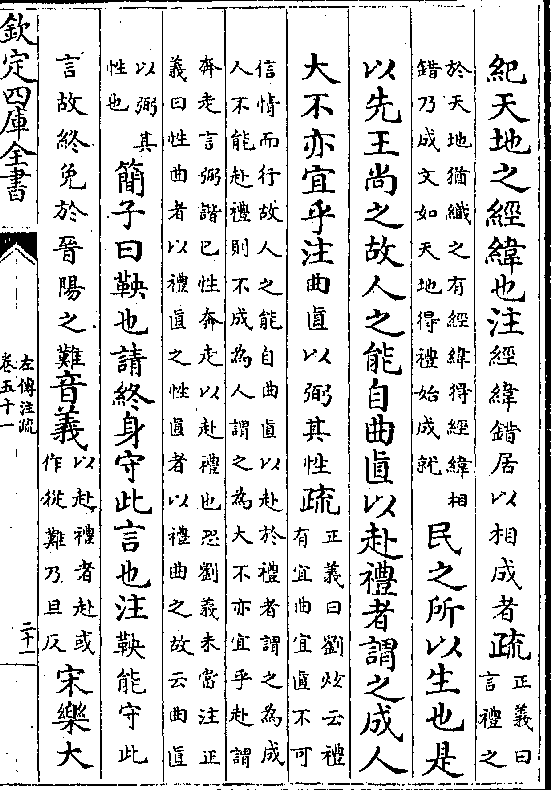 紀天地之經緯也注經緯錯居以相成者疏正義曰
言禮之
於天地猶織之有經緯得經緯相
錯乃成文如天地得禮始成就
民之所以生也是
以先王尚之故人之能自曲直以赴禮者謂之成人
大不亦宜乎注曲直以弼其性疏正義曰劉炫云禮
有宜曲宜直不可
信情而行故人之能自曲直以赴於禮者謂之為成
人不能赴禮則不成為人謂之為大不亦宜乎赴謂
奔走言弼諧己性奔走以赴禮也恐劉義未當注正
義曰性曲者以禮直之性直者以禮曲之故云曲直
以弼其
性也
簡子曰鞅也請終身守此言也注鞅能守此
言故終免於晉陽之難音義以赴禮者赴或
作從難乃旦反
宋樂大
欽定四庫全書
左傳注疏
卷五十一